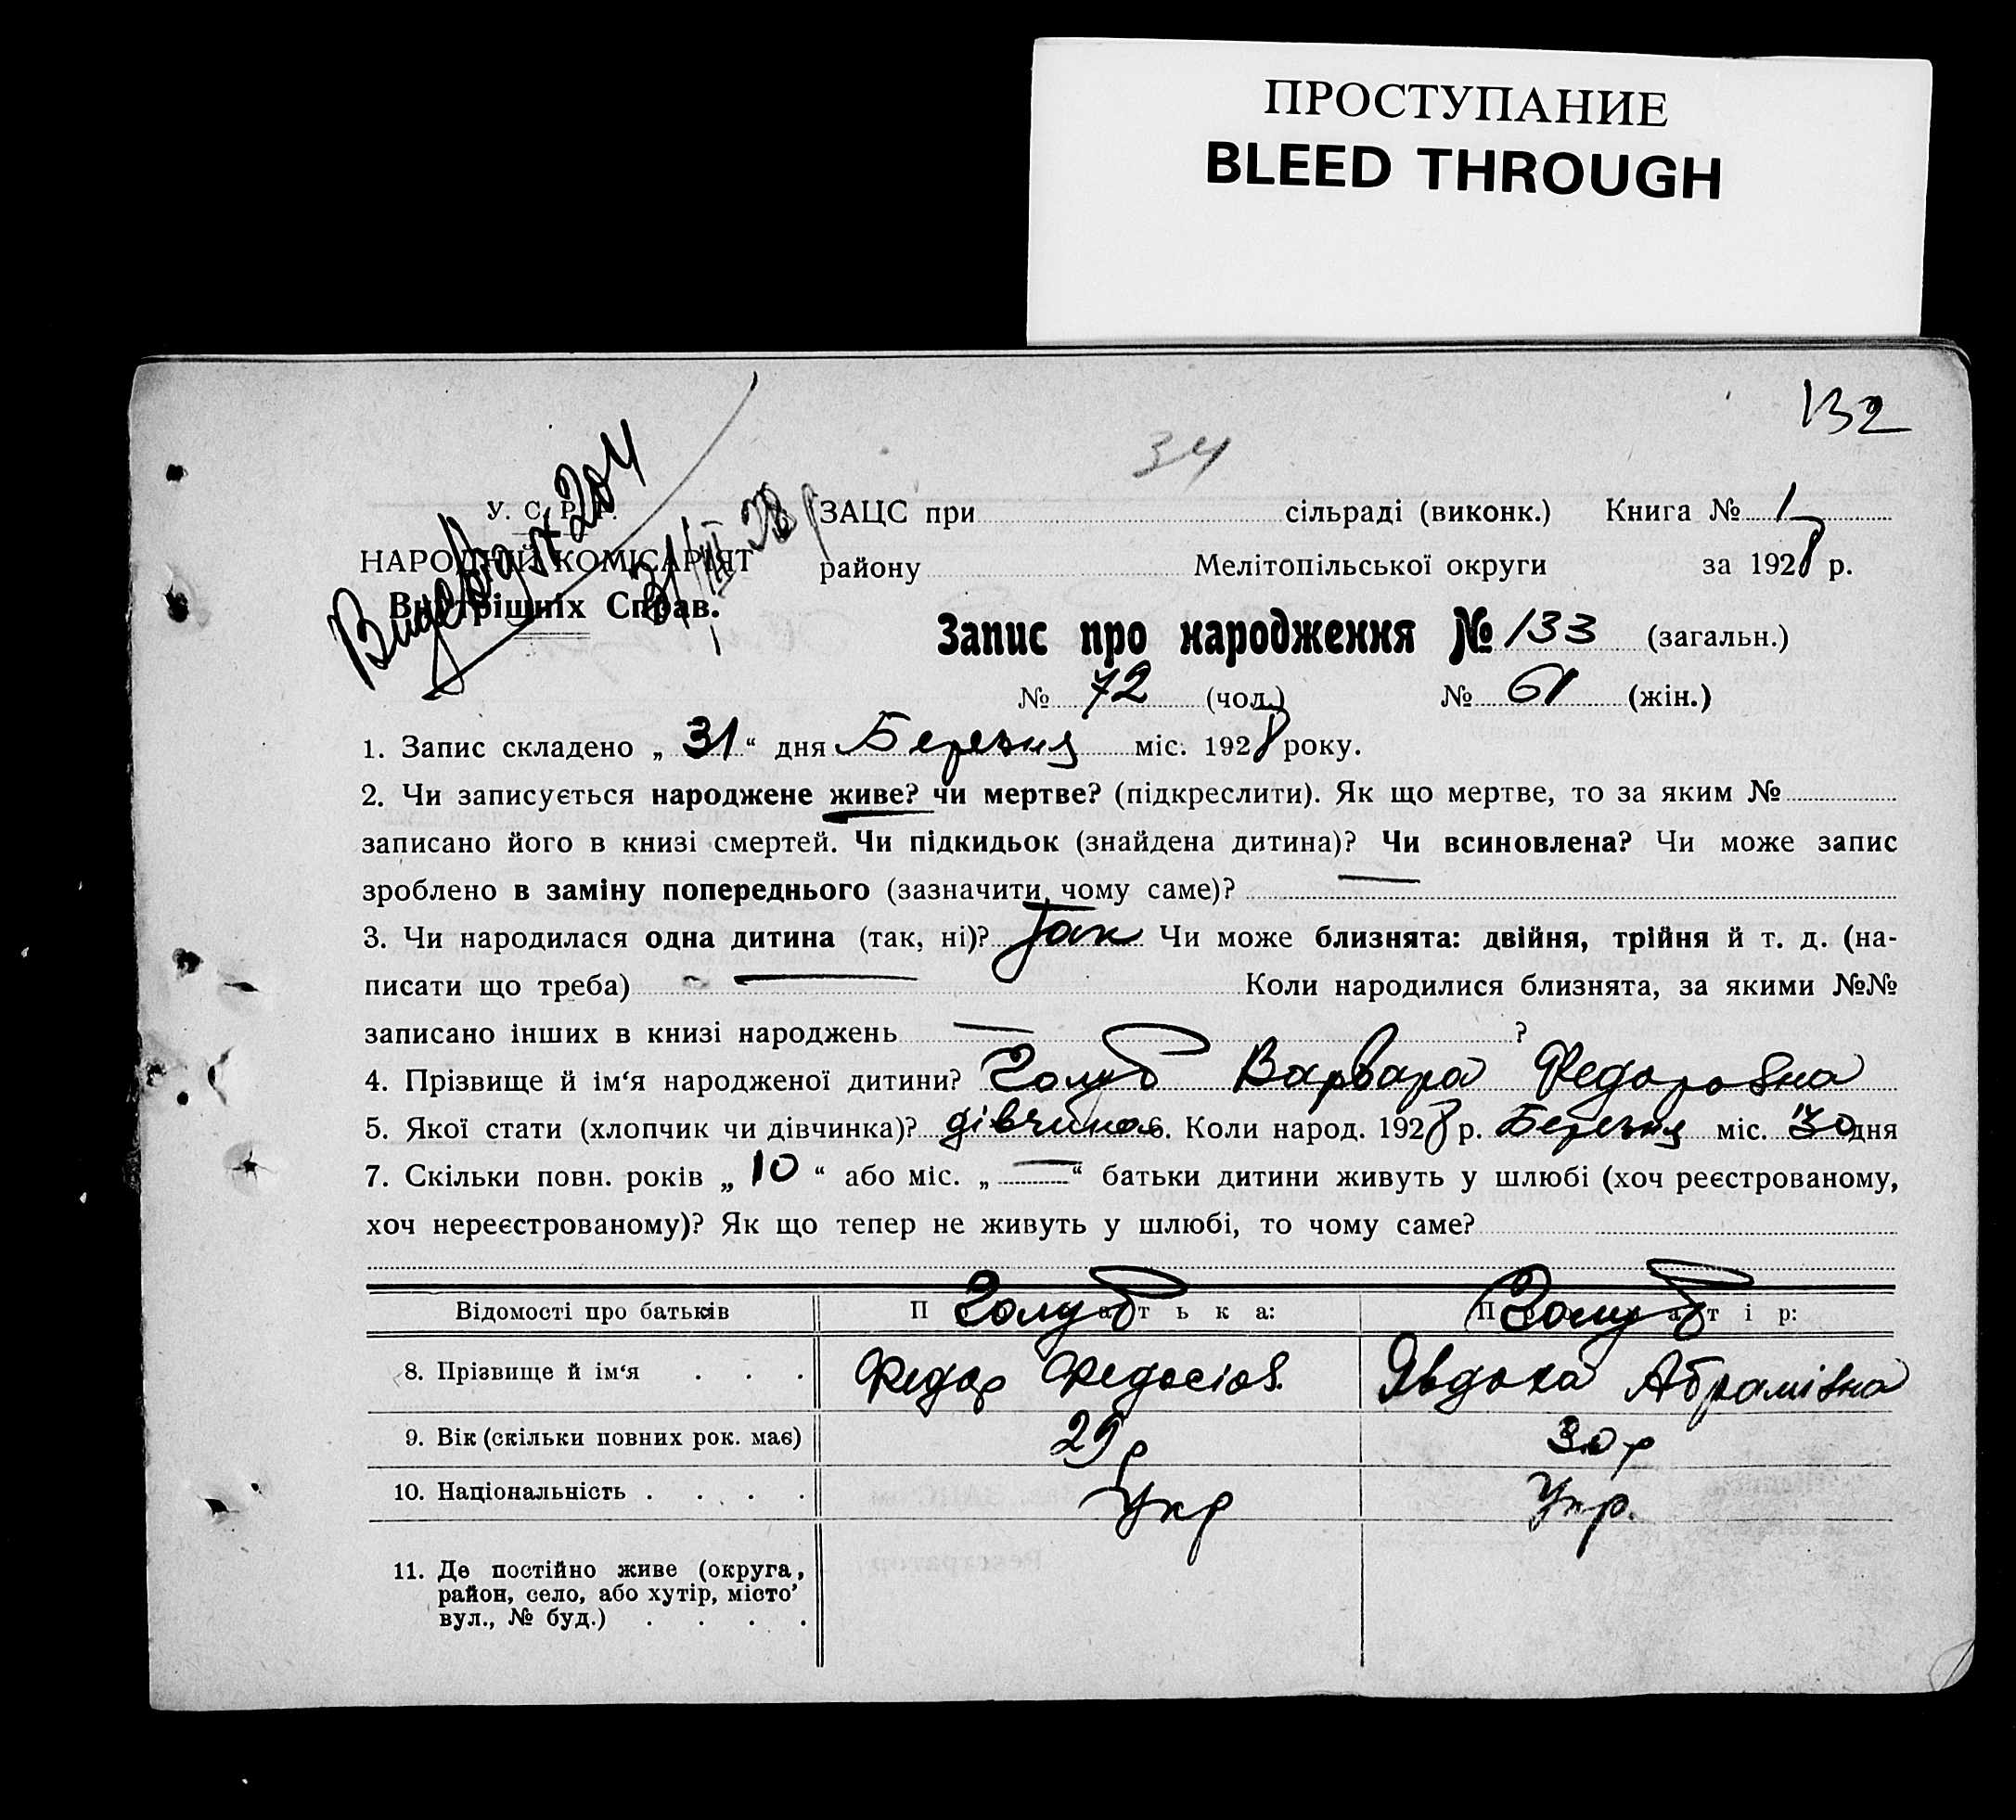 ПРОСТУПАНИЕ
BLEED THROUGH
132
34
У. С. Р. Р. ЗАЦС при сільраді (виконк.) Книга № 1
НАРОДНІЙ КОМІСАРІЯТ району Мелітопільської округи за 1928 р.
Внутрішніх Справ.
204
31/III 28 р
Запис про народження № 133 (загальн.)
№ 72 (чол.) № 61 (жін.)
1. Запис складено „ 31 “ дня Березня міс. 1928 року.
2. Чи записується народжене живе? чи мертве? (підкреслити). Як що мертве, то за яким №
записано його в книзі смертей. Чи підкидьок (знайдена дитина)? Чи всиновлена? Чи може запис
зроблено в заміну попереднього (зазначити, чому саме)? —
3. Чи народилася одна дитина (так, ні)? Так Чи може близнята: двійня, трійня й т. д. (на-
писати що треба) — Коли народилися близнята, за якими №№
записано інших в книзі народжень — ?
4. Прізвище й ім‘я народженої дитини? Голуб Варвара Федоровна
5. Якої стати (хлопчик чи дівчинка)? дівчина 6. Коли народ. 1928 р. Березня міс. 30 дня
7. Скільки повн. років „ 10 “ або міс. „ — “ батьки дитини живуть у шлюбі (хоч реєстрованому,
хоч нереєстрованому)? Як що тепер не живуть у шлюбі, то чому саме?
Відомості про батьків Голуб Голуб
8. Прізвище й ім‘я . . . Федор Федосіов. Явдоха Абрамівна
9. Вік (скільки повних рок. має) 29 р 30 р
10. Національність . . . . Укр Укр.
11. Де постійно живе (округа,
район, село, або хутір, місто’
вул., № буд.) . . . .